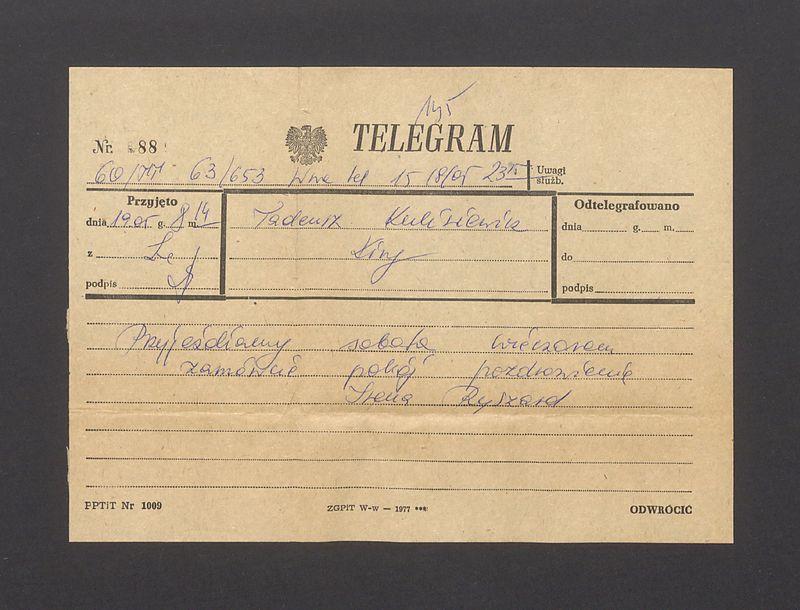 145
Nr. 88
TELEGRAM
60/777 63/653 Wwa tel 15 18/05 23
Uwagi
służb.
Przyjęto
dnia 19.05 g. 8 m. 14
z
podpis
Tadeusz Kulisiewicz
Odtelegrafowano
dnia g. m.
do
podpis
Przyjeżdżamy sobotę wieczorem
zamówcie pokój pozdrowienia
Irena Ryszard
PPTiT Nr 1009
ZGPiT W-w — 1977 ***
ODWRÓCIĆ